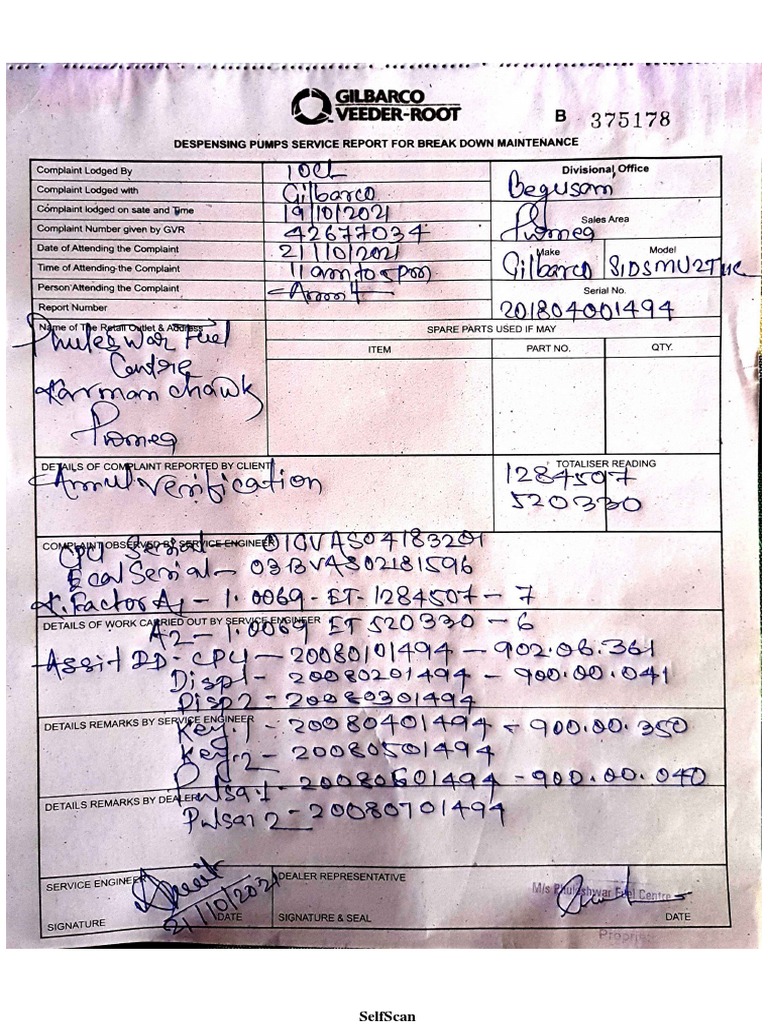 GILBARCO
VEEDER-ROOT
B 375178
DESPENSING PUMPS SERVICE REPORT FOR BREAK DOWN MAINTENANCE
Complaint Lodged By IOCL
Complaint Lodged with Gilbarco
Complaint lodged on sate and Time 19/10/2021
Complaint Number given by GVR 42677034
Date of Attending the Complaint 21/10/2021
Time of Attending the Complaint 11am to 5pm
Person Attending the Complaint
Report Number
Divisional Office
Sales Area
Make Gilbarco
Model
Serial No.
201804001494
Name of The Retail Outlet & Address
Phuleswar Fuel
Centre
Karman chawk
SPARE PARTS USED IF MAY
ITEM PART NO. QTY.
DETAILS OF COMPLAINT REPORTED BY CLIENT
Verification
TOTALISER READING
1284507
520330
COMPLAINT OBSERVED BY SERVICE ENGINEER
CPU Serial - 01GVAS04183201
Ecal Serial - 03BVAS02181596
K.Factor A1 - 1.0069 - ET - 1284507 - 7
DETAILS OF WORK CARRIED OUT BY SERVICE ENGINEER
A2 - 1.0069 ET 520330 - 6
ID - CPU - 20080101494 - 902.06.361
Disp1 - 20080201494 - 900.00.041
Disp2 - 20080301494
DETAILS REMARKS BY SERVICE ENGINEER
Key.1 - 20080401494 - 900.00.350
Key.2 - 20080501494
Pulsar1 - 20080601494 - 900.00.040
DETAILS REMARKS BY DEALER
Pulsar 2 - 20080701494
SERVICE ENGINEER
SIGNATURE
21/10/2021
DATE
DEALER REPRESENTATIVE
SIGNATURE & SEAL
M/s Phuleshwar Fuel Centre
DATE
SelfScan